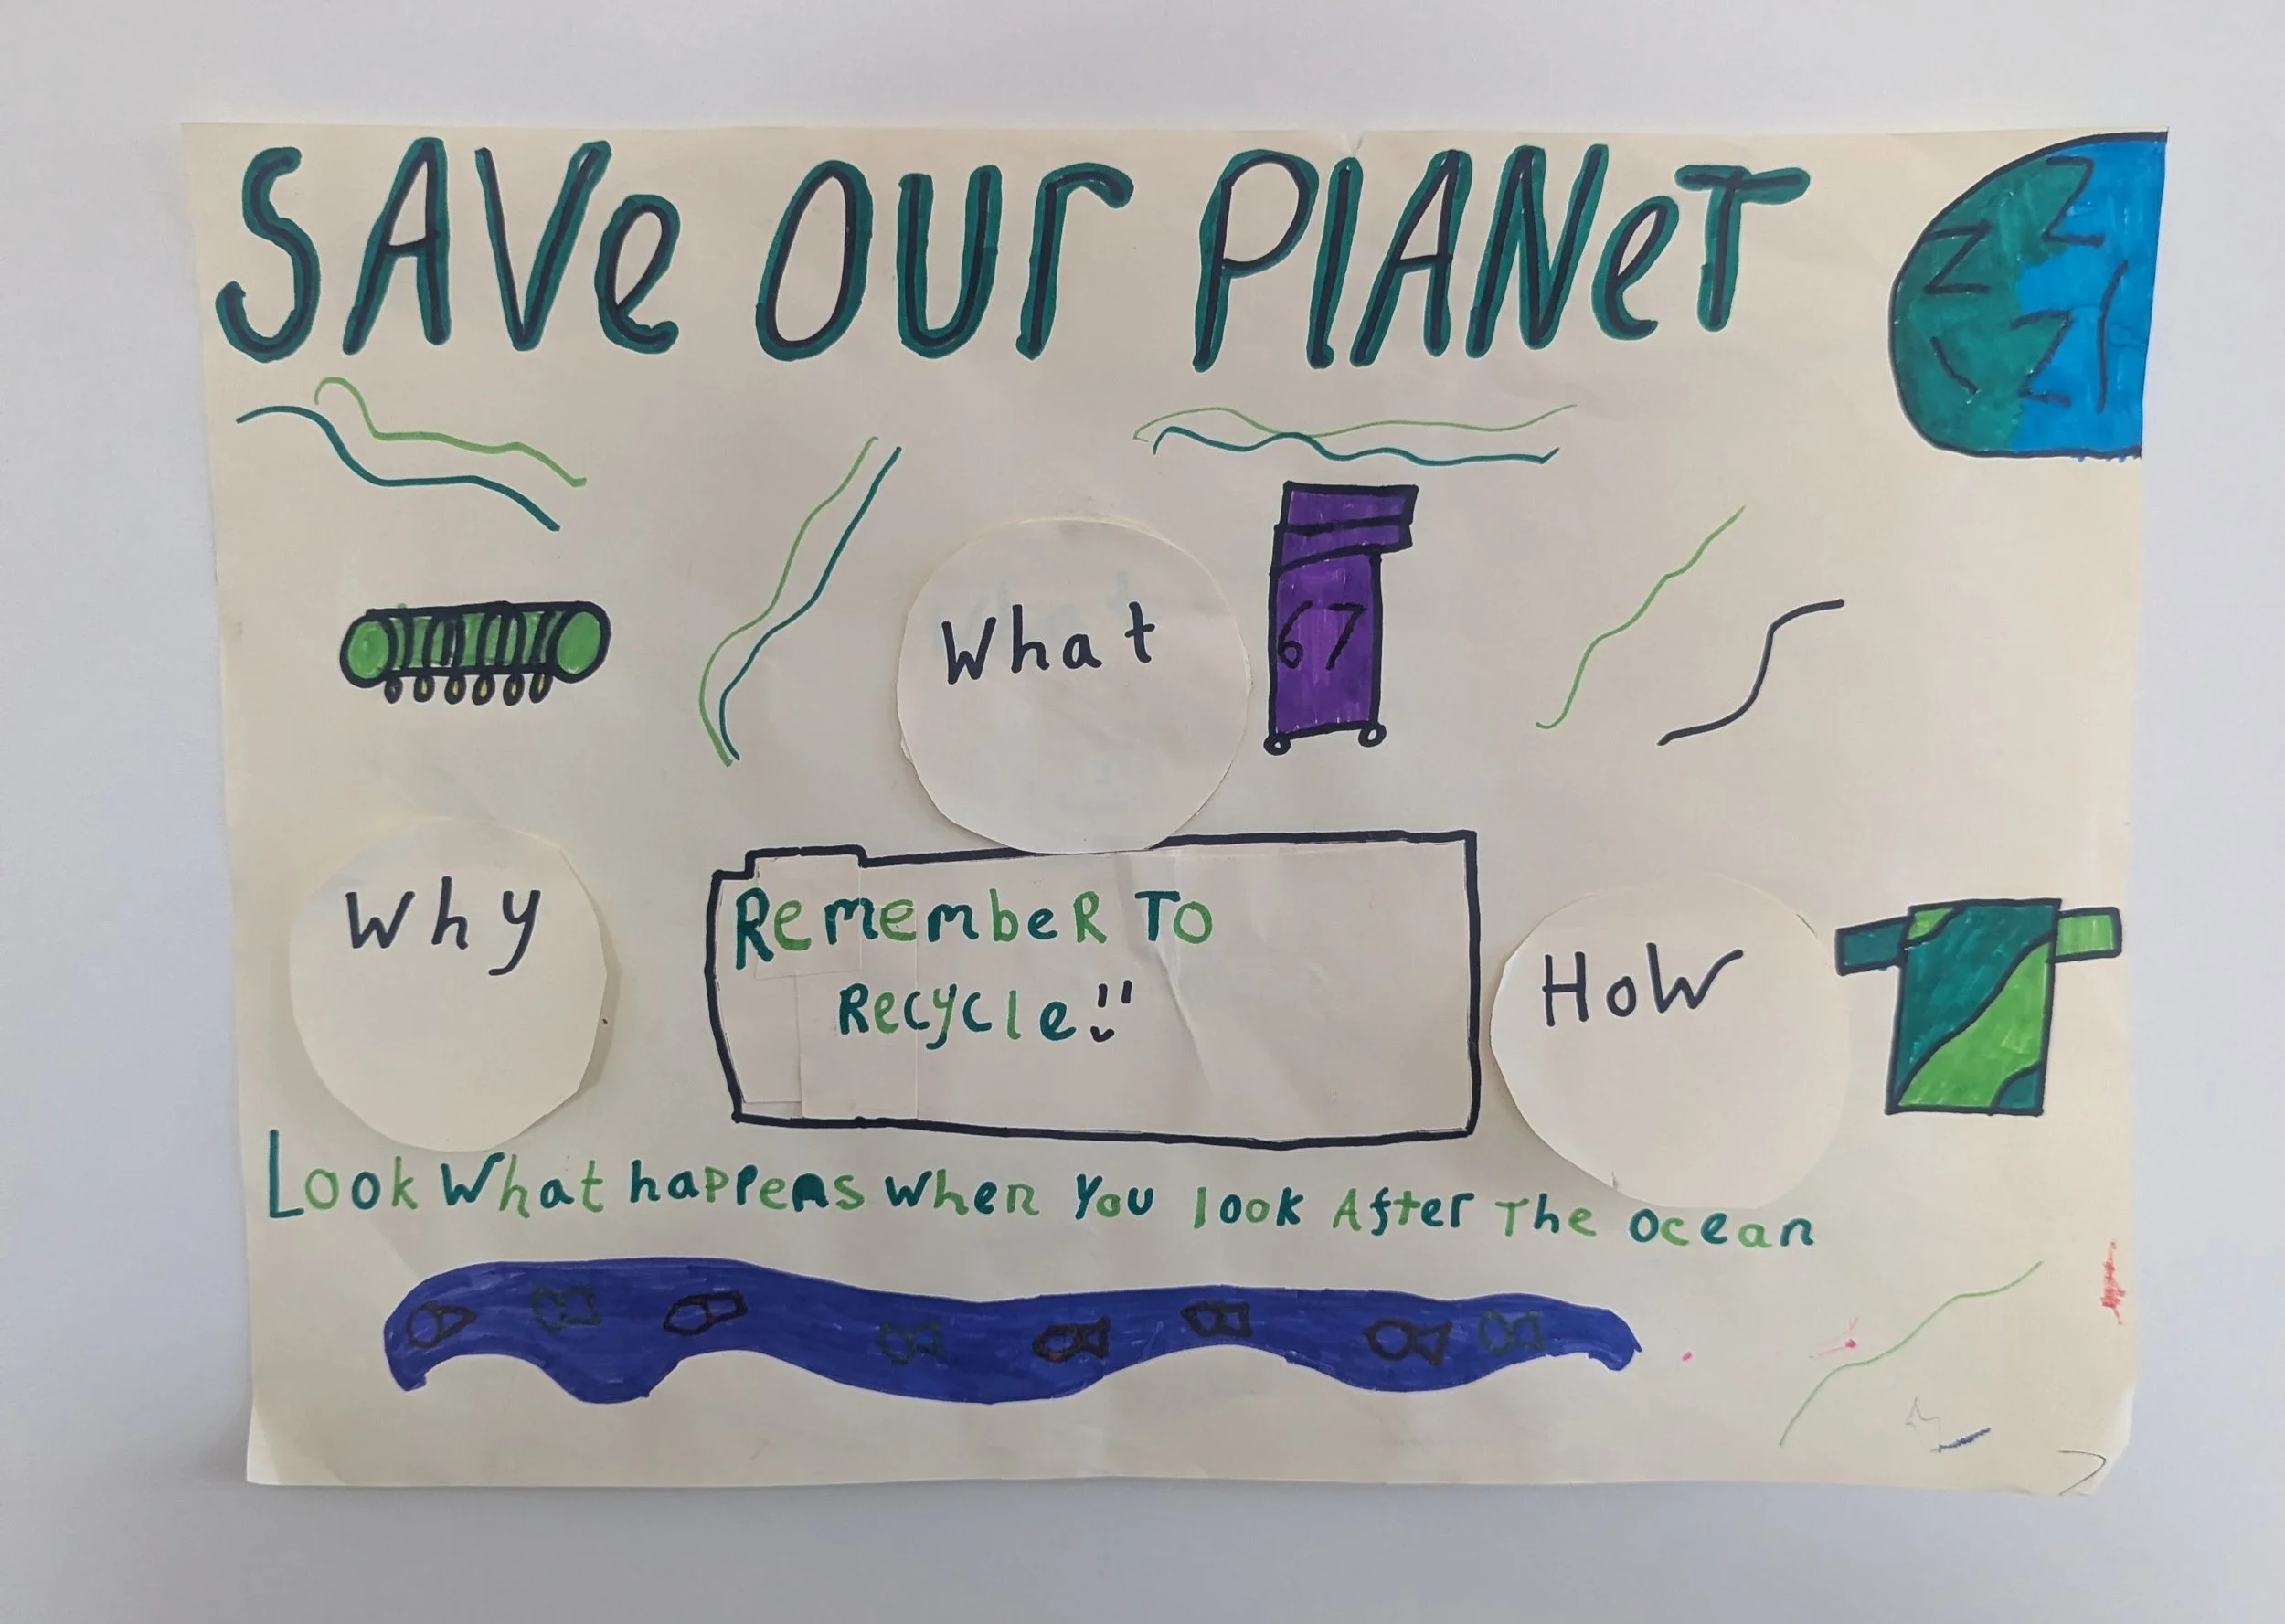 SAVe OUr PlANeT
What
67
Why
RemembeR To
Recycle!!
HoW
Look What happens when You look After The ocean